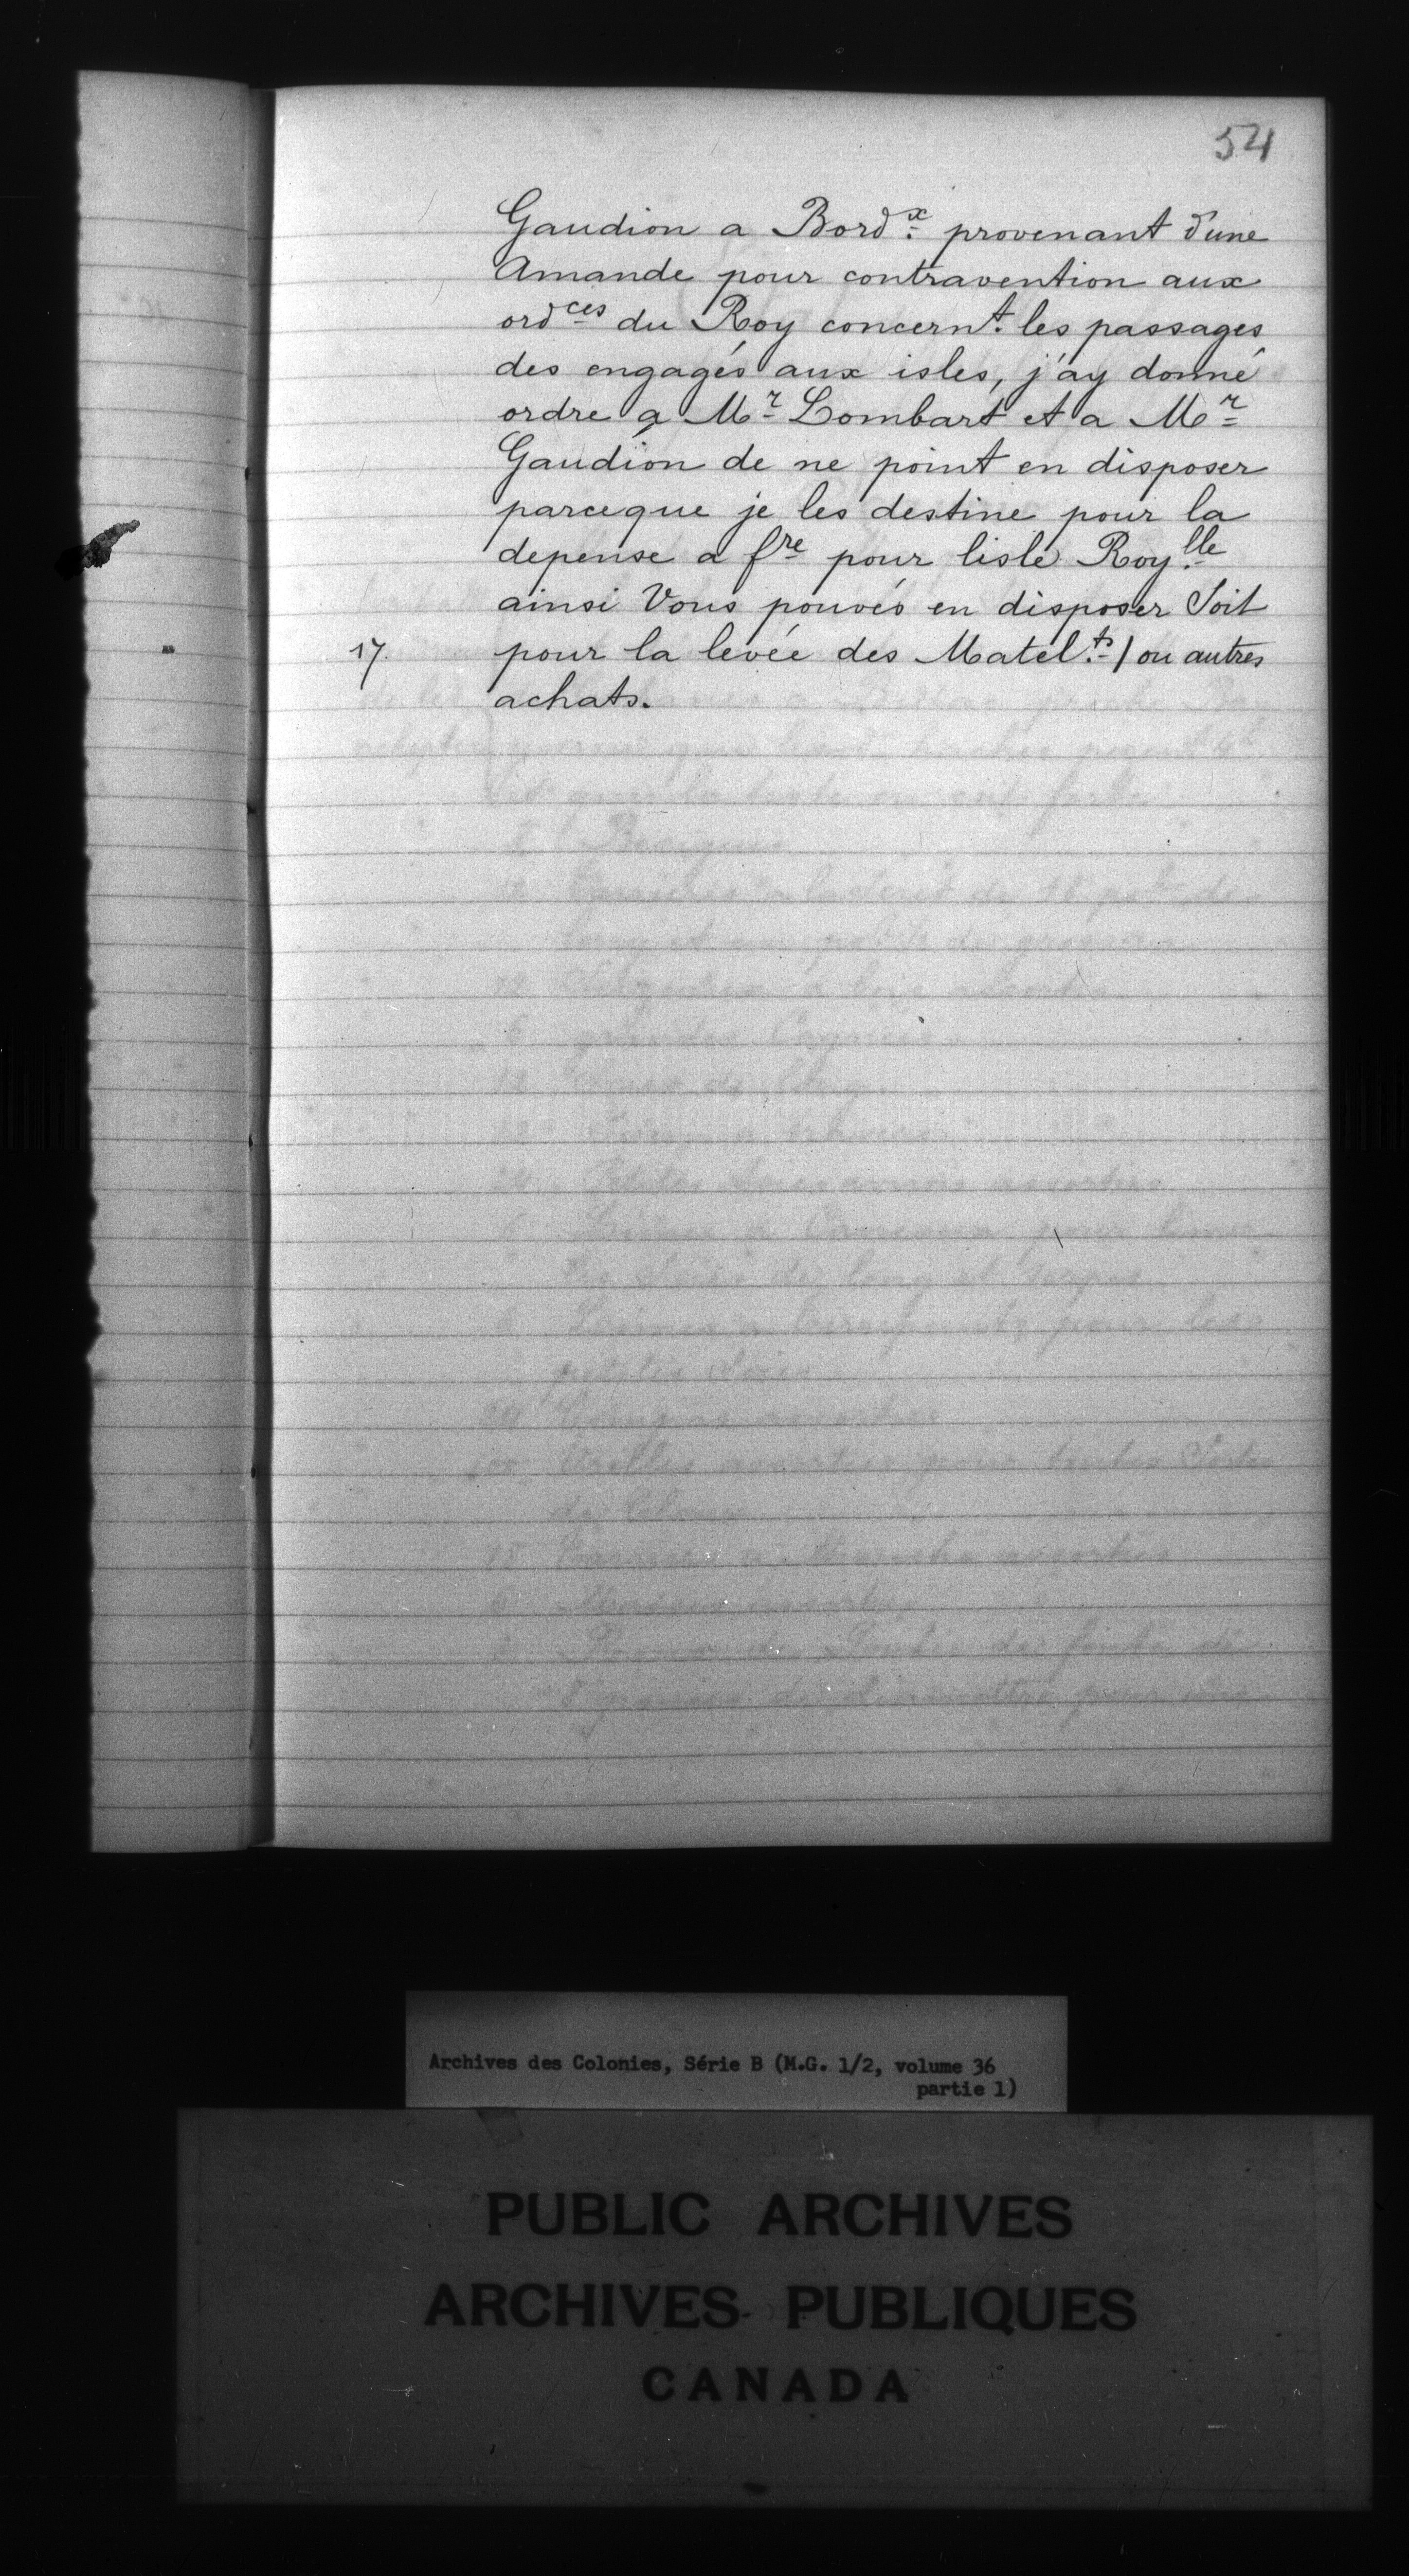 54
Gaudion a Bord.x provenant d'une
Amande pour contravention aux
ord.ces du Roy concern.t les passages
des engagés aux isles, j'ay donné
ordre a M.r Lombart et a M.r
Gaudion de ne point en disposer
parceque je les destine pour la
depense a f.re pour lisle Roy.lle
ainsi Vous pouvés en disposer Soit
17. pour la levée des Matel.ts / ou autres
achats.
Archives des Colonies, Série B (M.G. 1/2, volume 36
partie 1)
PUBLIC ARCHIVES
ARCHIVES PUBLIQUES
CANADA